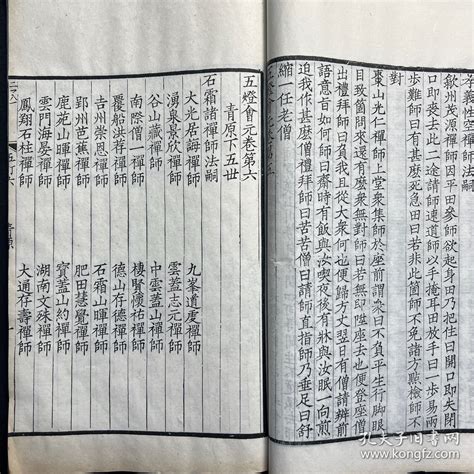 孝義性空禪師法嗣
歙州茂源禪師因平田來參師欲起身田乃把住曰開口即失閉
口即喪去此二途請師速道師以手掩耳田放手曰一步易兩
步難師曰有甚麼死急田曰若非此箇師不免諸方點檢師不
對
棗山光仁禪師上堂衆集師於座前謂衆曰不負平生行脚眼
目致箇問來還有麼衆無對師曰若無即陞座去也便登座僧
出禮拜師曰負我且從大衆何也便歸方丈翌日有僧請辨前
語意旨如何師曰齋時有飯與汝喫夜後有牀與汝眠一向煎
迫我作甚麼僧禮拜師曰苦苦僧曰請師直指師乃垂足曰舒
縮一任老僧
五燈會元卷第五
五燈會元卷第六
青原下五世
石霜諸禪師法嗣
大光居誨禪師 九峯道虔禪師
湧泉景欣禪師 雲蓋志元禪師
谷山藏禪師 中雲蓋山禪師
南際僧一禪師 棲賢懷祐禪師
覆船洪荐禪師 德山存德禪師
吉州崇恩禪師 石霜山暉禪師
郢州芭蕉禪師 肥田慧覺禪師
鹿苑山暉禪師 寶蓋山約禪師
雲門海晏禪師 湖南文殊禪師
鳳翔石柱禪師 大通存壽禪師
孔夫子旧书网
www.kongfz.com